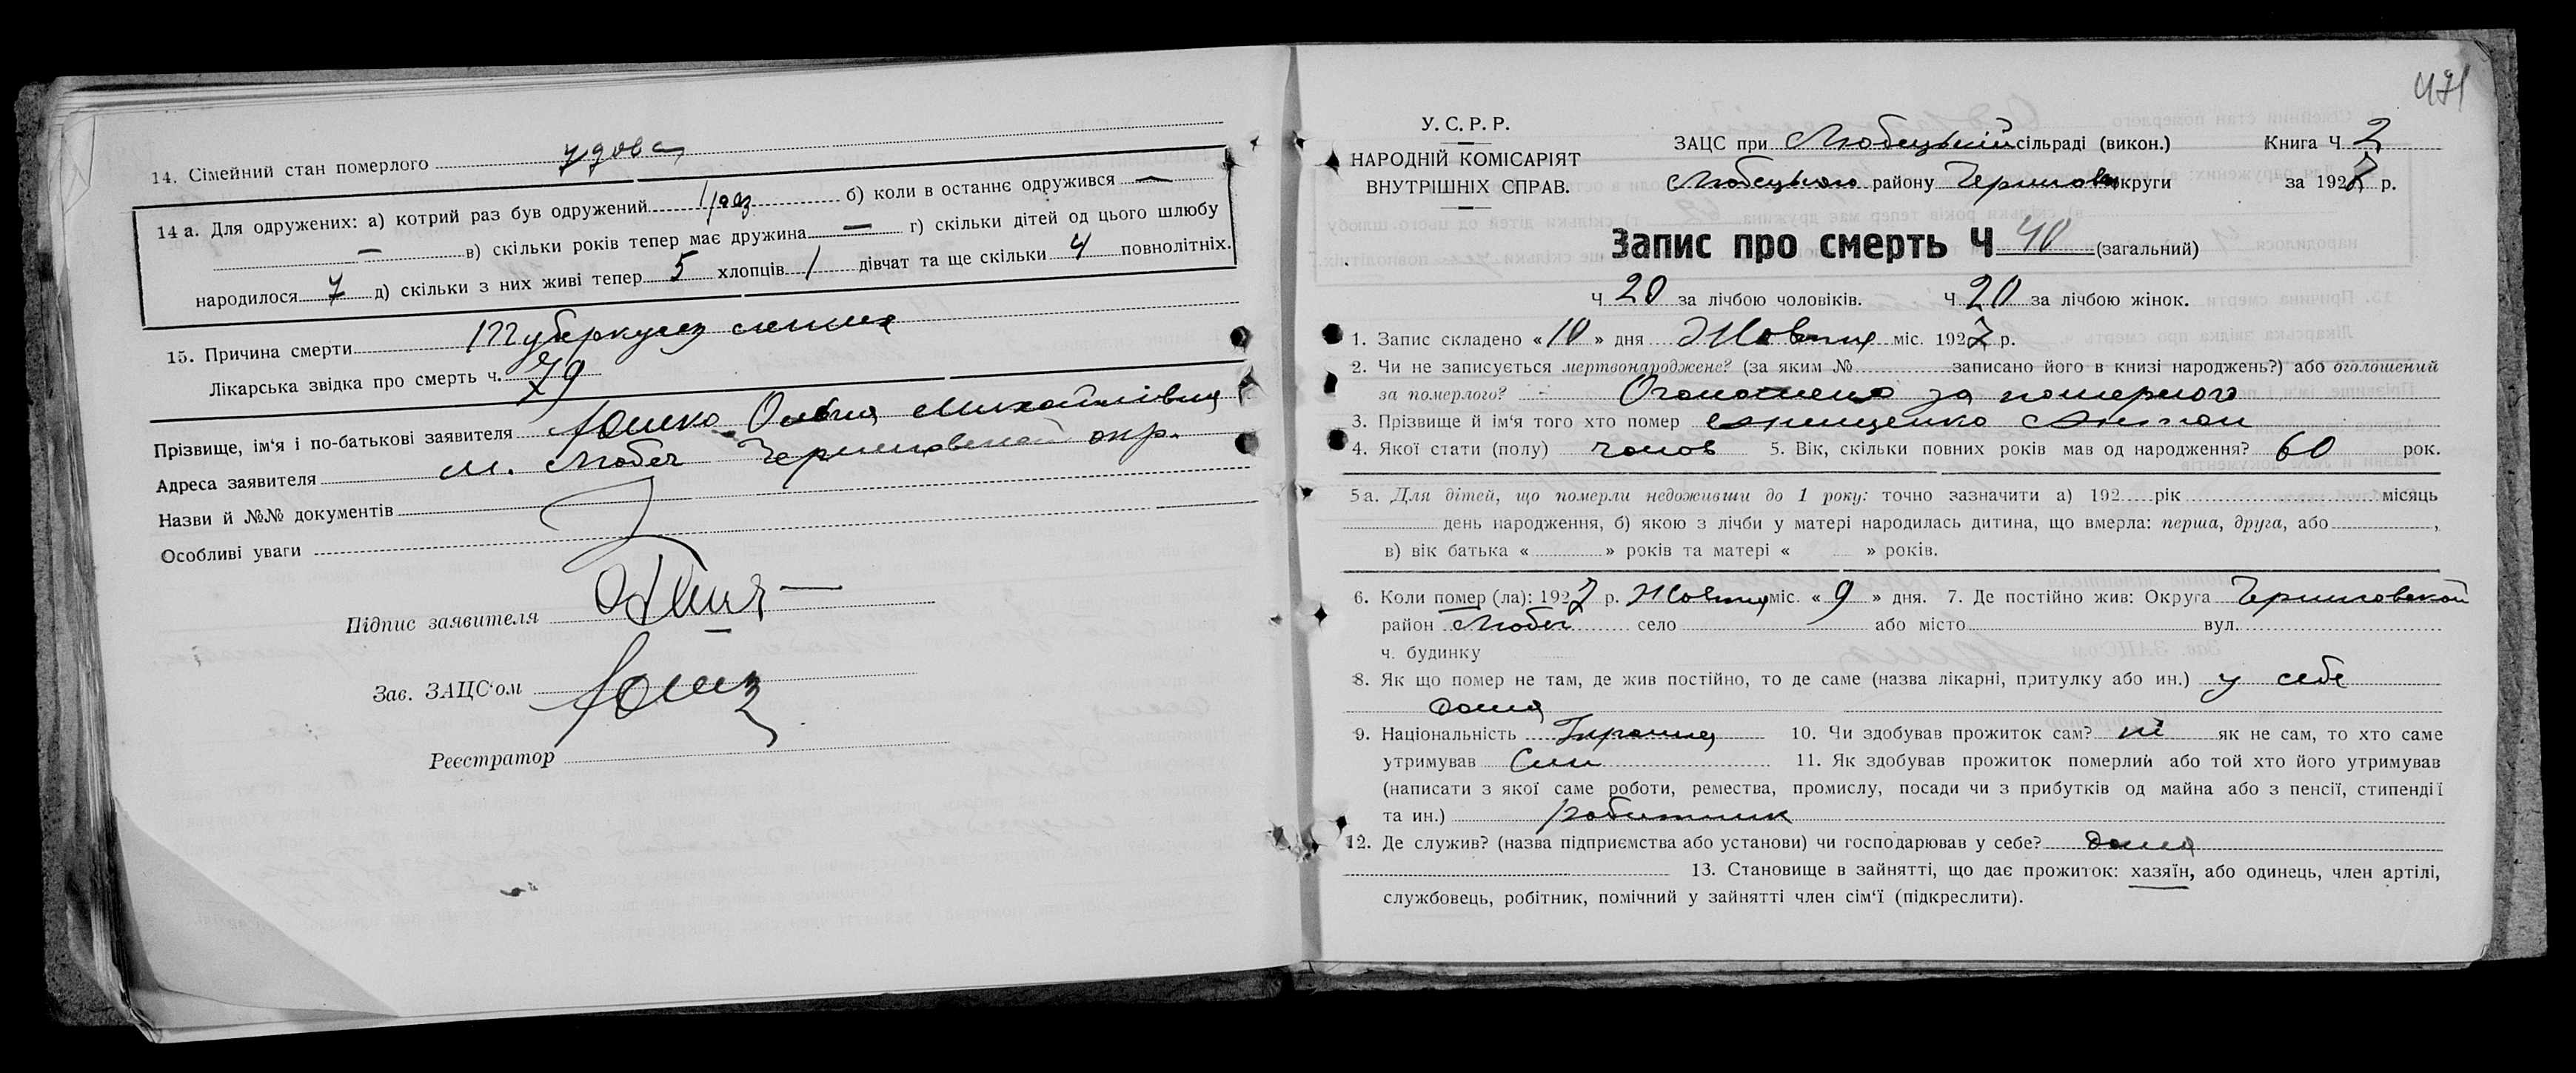 14. Сімейний стан померлого удова
14 а. Для одружених: а) котрий раз був одружений 1 раз б) коли в останнє одружився —
— в) скільки років тепер має дружина — г) скільки дітей од цього шлюбу
народилося 7 д) скільки з них живі тепер 5 хлопців 1 дівчат та ще скільки 4 повнолітніх.
15. Причина смерти Туберкулез
Лікарська звідка про смерть ч. 79
Прізвище, ім'я і по-батькові заявителя Юшко Ольга Михайлівна
Адреса заявителя м. Любеч Черниговской окр.
Назви й №№ документів
Особливі уваги
Підпис заявителя
Зав. ЗАЦС'ом
Реєстратор
471
У. С. Р. Р.
НАРОДНІЙ КОМІСАРІЯТ
ВНУТРІШНІХ СПРАВ.
ЗАЦС при Любецькій сільраді (викон.) Книга Ч 2
Любецького району Чернигов округи за 1927 р.
Запис про смерть Ч 40 (загальний)
Ч 20 за лічбою чоловіків. Ч 20 за лічбою жінок.
1. Запис складено «10» дня Жовтня міс. 1927 р.
2. Чи не записується мертвонароджене? (за яким № записано його в книзі народжень?) або оголошений
за померлого? - Оголошено за померлого
3. Прізвище й ім'я того хто помер Антон
4. Якої стати (полу) чолов 5. Вік, скільки повних років мав од народження? 60 рок.
5 а. Для дітей, що померли недоживши до 1 року: точно зазначити а) 192 рік місяць
день народження, б) якою з лічби у матері народилась дитина, що вмерла: перша, друга, або ,
в) вік батька « » років та матері « » років.
6. Коли помер (ла): 1927 р. Жовтня міс. «9» дня. 7. Де постійно жив: Округа Черниговской
район Любеч село або місто вул.
ч. будинку
8. Як що помер не там, де жив постійно, то де саме (назва лікарні, притулку або ин.) у себе
дома
9. Національність 10. Чи здобував прожиток сам? ні як не сам, то хто саме
утримував Син 11. Як здобував прожиток померлий або той хто його утримував
(написати з якої саме роботи, ремества, промислу, посади чи з прибутків од майна або з пенсії, стипендії
та ин.) робитник
12. Де служив? (назва підприємства або установи) чи господарював у себе? дома
13. Становище в зайнятті, що дає прожиток: хазяїн, або одинець, член артілі,
службовець, робітник, помічний у зайнятті член сім'ї (підкреслити).